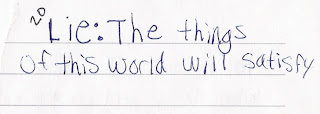 20 Lie: The things
of this world will satisfy